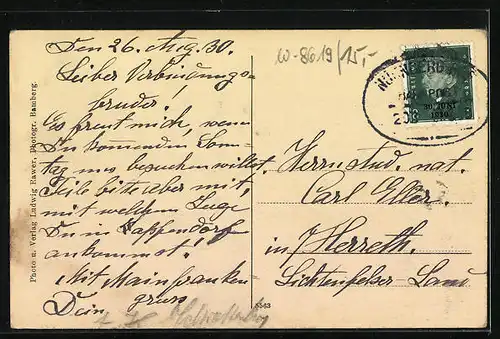 Den 26. Aug. 30.
Lieber Verbindungs-
bruder!
Es freut mich, wenn
Du kommenden Sonn-
tag mich besuchen willst.
Teile bitte aber mit,
mit welchem Zuge
Du in Rappendorf
ankommst!
Mit Mainfranken-
gruss
Dein
W-8619/15,-
30. JUNI
1930
Herrn stud. nat.
Carl Eller.
in Herreth.
Lichtenfelser-Land
Photo u. Verlag Ludwig Kawer, Photogr. Bamberg.
5363